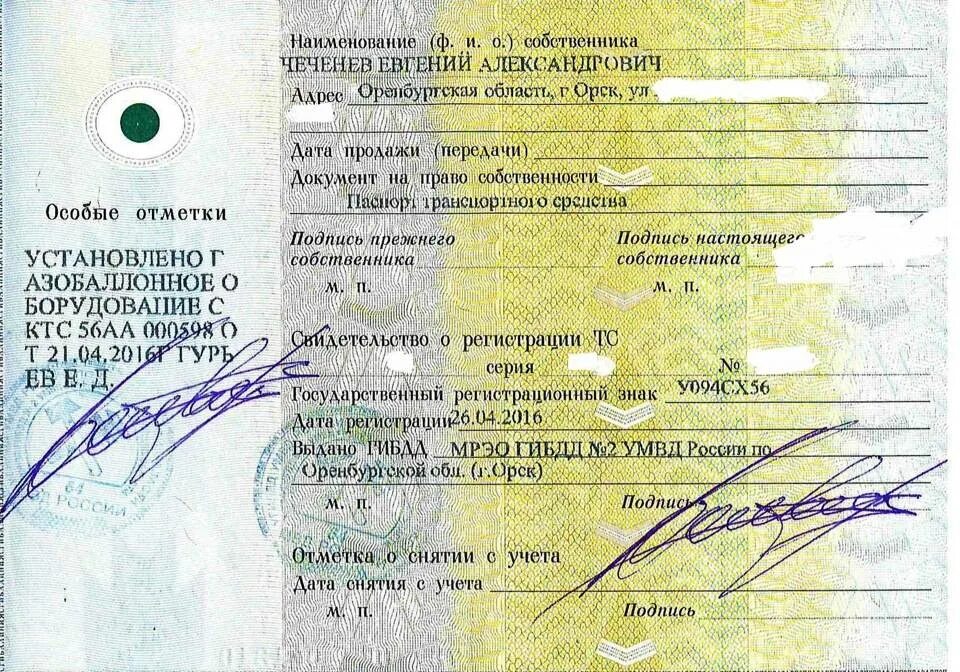 Особые отметки
УСТАНОВЛЕНО Г
АЗОБАЛЛОННОЕ О
БОРУДОВАНИЕ С
КТС 56АА 000598 О
Т 21.04.2016Г ГУРЬ
ЕВ Е. Д.
64
РОССИИ
Наименование (ф. и. о.) собственника
ЧЕЧЕНЕВ ЕВГЕНИЙ АЛЕКСАНДРОВИЧ
Адрес Оренбургская область, г Орск, ул
Дата продажи (передачи)
Документ на право собственности
Паспорт транспортного средства
Подпись прежнего Подпись настоящего
собственника собственника
м. п. м. п.
Свидетельство о регистрации ТС
серия №
Государственный регистрационный знак У094СХ56
Дата регистрации 26.04.2016
Выдано ГИБДД МРЭО ГИБДД №2 УМВД России по
Оренбургской обл. (г.Орск)
м. п. Подпись
Отметка о снятии с учета
Дата снятия с учета
м. п. Подпись